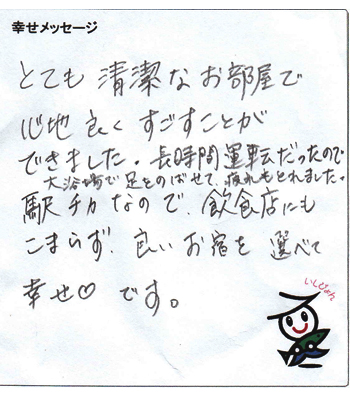 幸せメッセージ
とても清潔なお部屋で
心地良くすごすことが
できました。長時間運転だったので
大浴場で足をのばせて、疲れもとれました。
駅チカなので、飲食店にも
こまらず、良いお宿を選べて
幸せ♡です。
いしぴょん